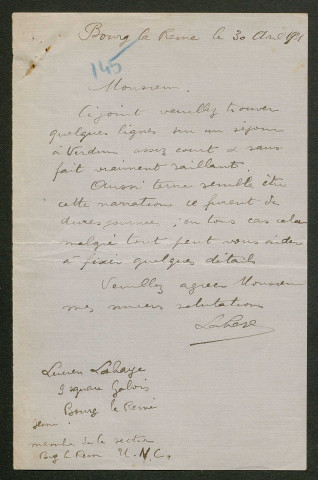 Bourg la Reine le 30 Avril
145
Monsieur.
Ci joint veuillez trouver
quelques lignes sur un séjour
à Verdun assez court & sans
fait vraiment saillant.
Aussi terne semble être
cette narration ce furent de
dures journées; en tous cas cela
malgré tout peut vous aider
à fixer quelques détails
Veuillez agréer Monsieur
mes sincères salutations
Lahaye
Lucien Lahaye
square Galois
Bourg la Reine
Seine
membre de la section
Bourg la Reine U.N.C.